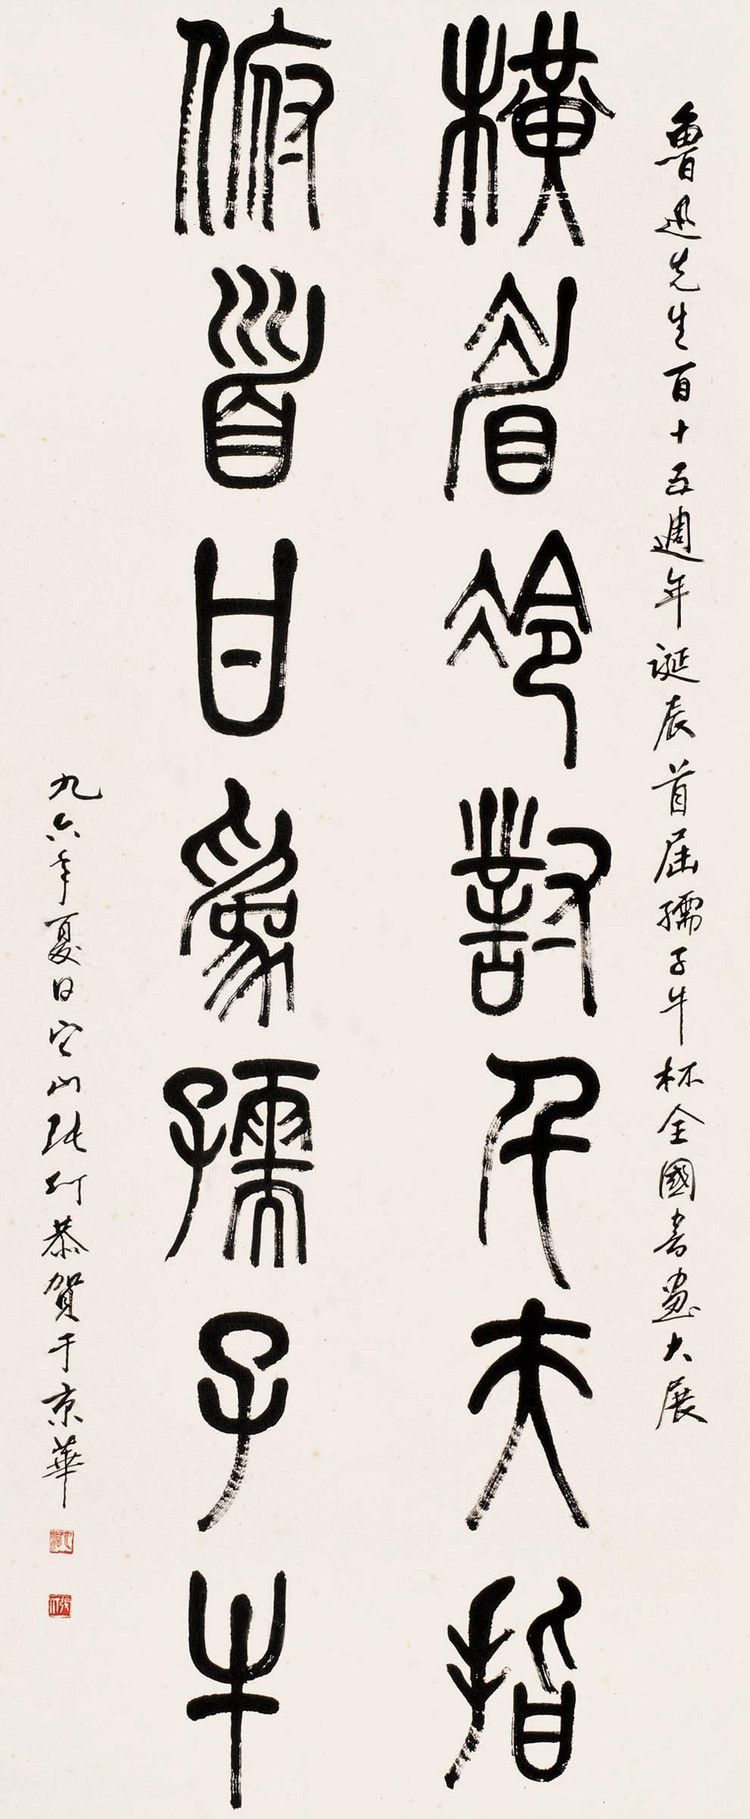 魯迅先生百十五週年誕辰首屆孺子牛杯全國書畫大展
橫眉冷對千夫指
俯首甘爲孺子牛
九六年夏日它山張仃恭賀于京華
張仃